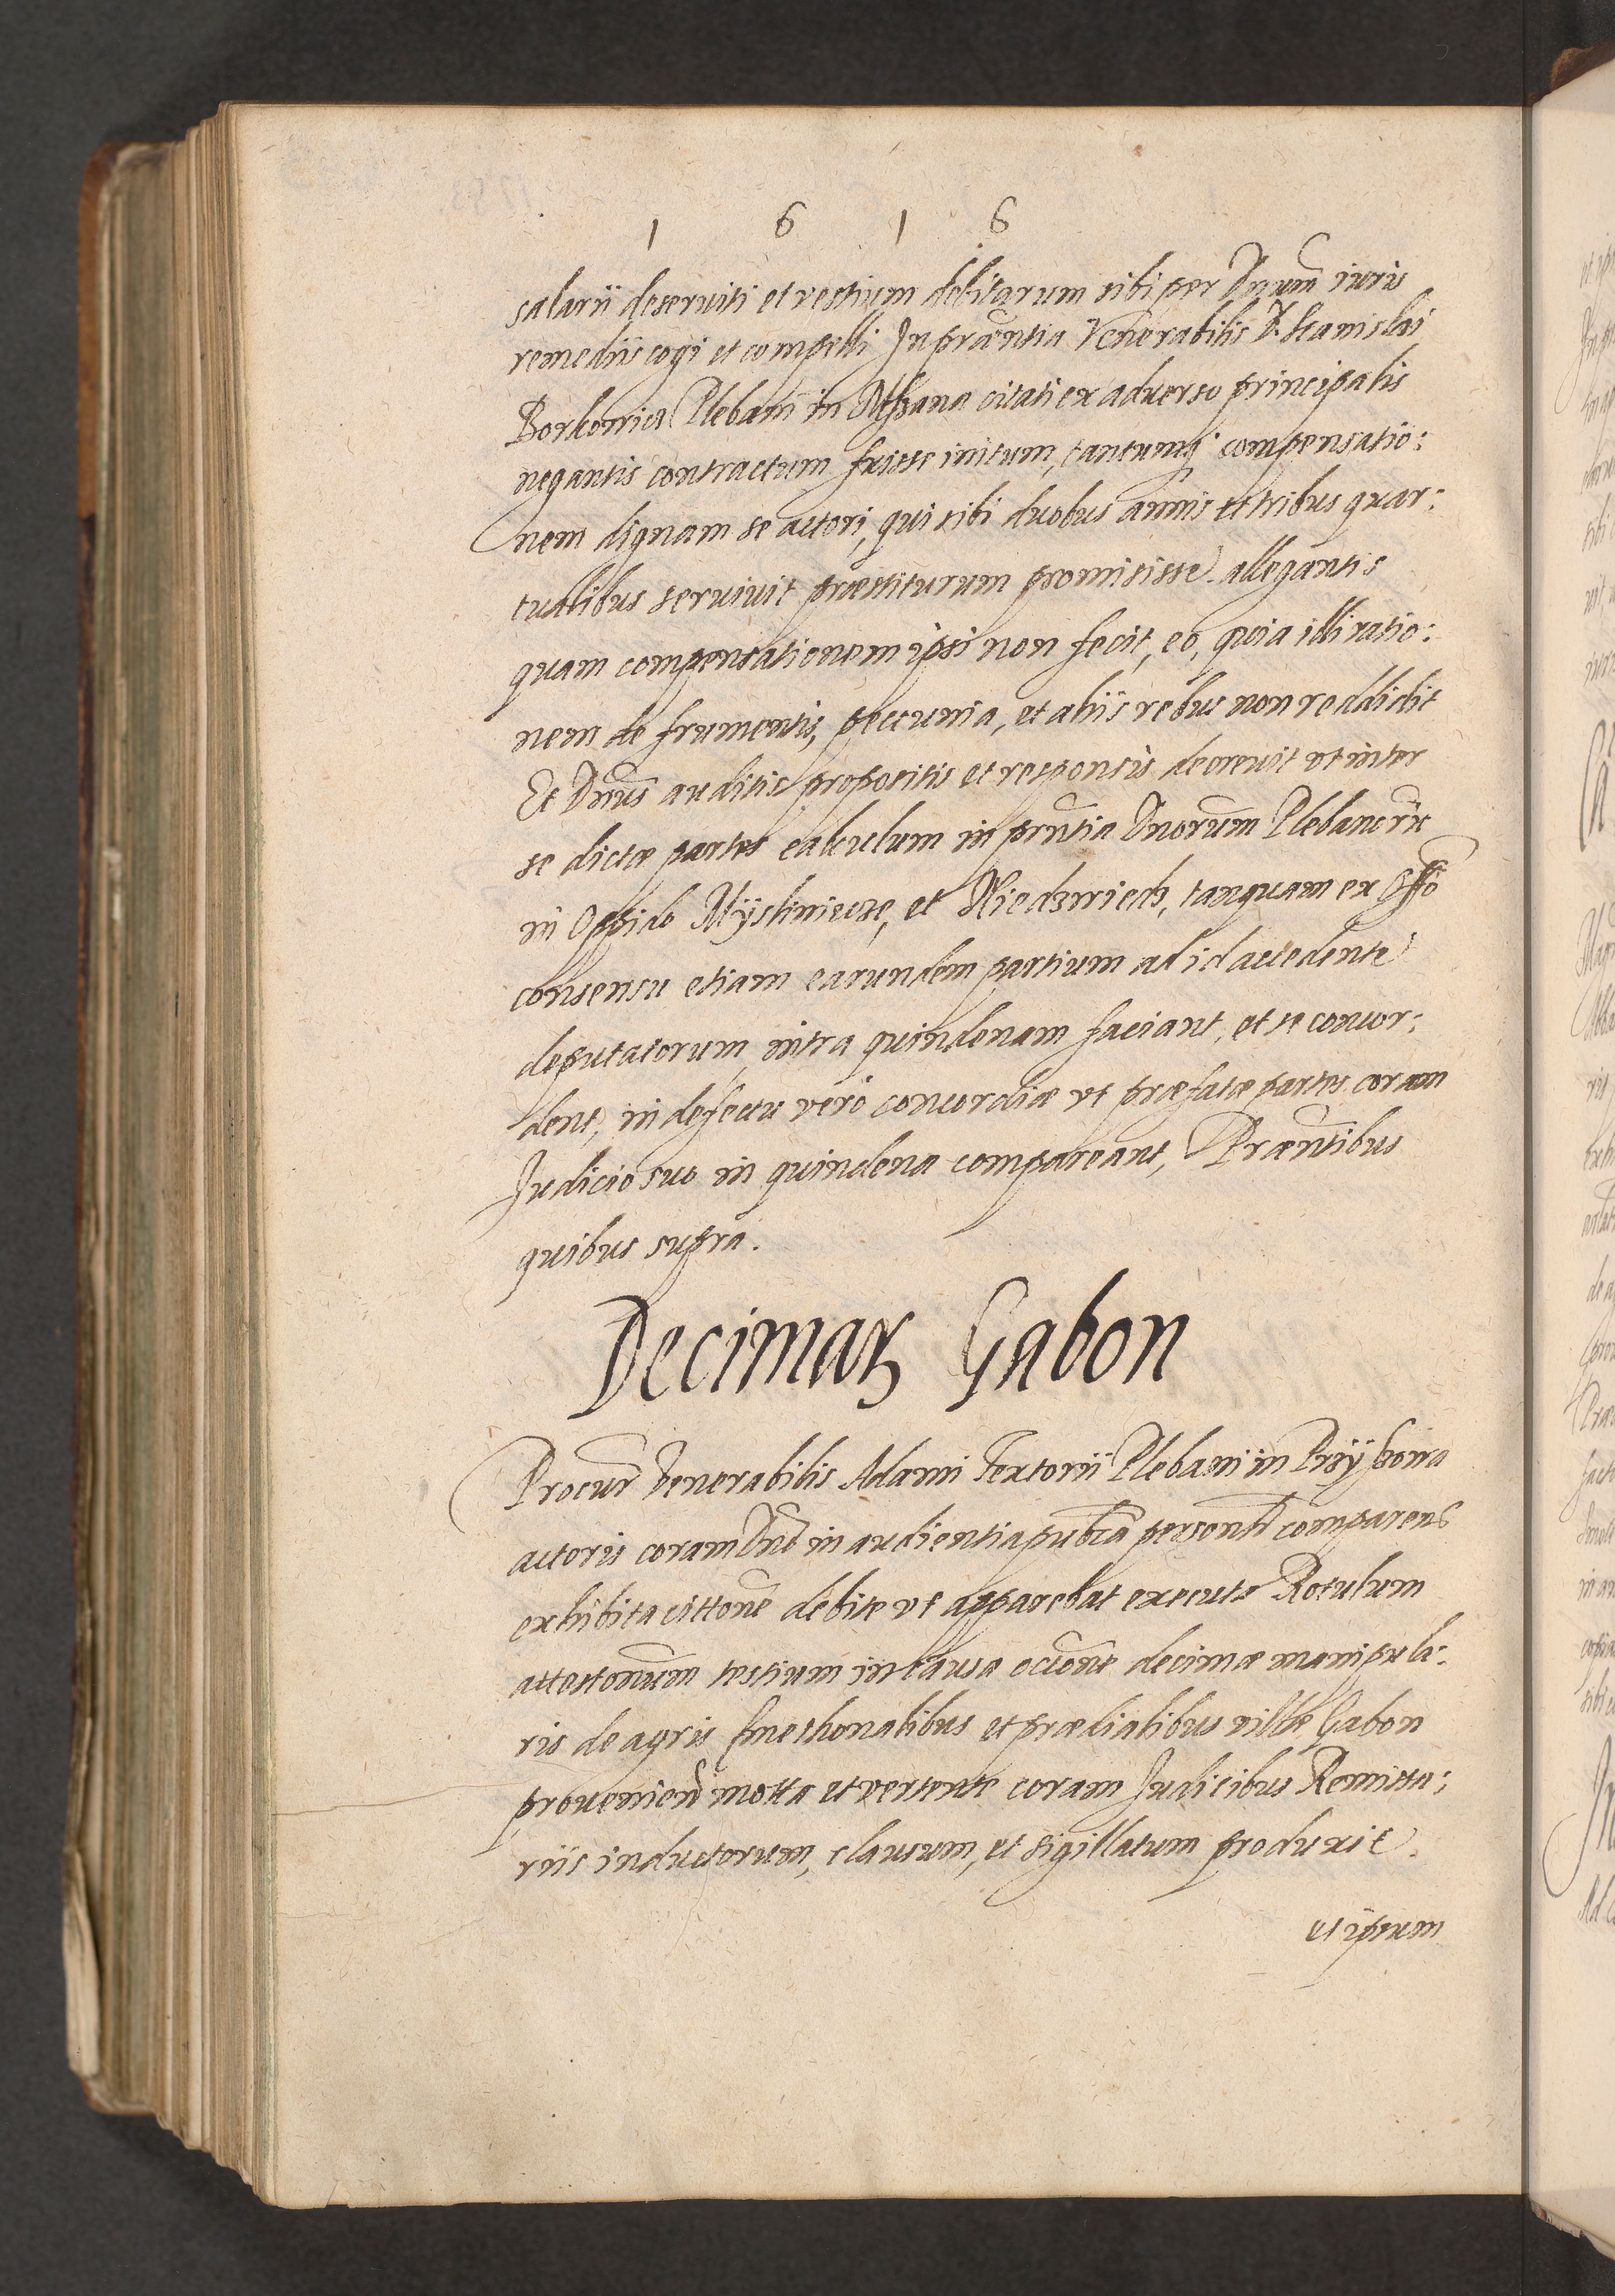 1 6 1 6
salarii deseruiti et vestium debitarum sibi per Dnum iuris
remediis cogi et compelli In præntia Venerabilis D. Stanislai
Borkowicz Plebani in Mszana citati ex aduerso principalis
negantis contractum fuisse initum, tantumq; compensatio:
nem dignam se actori, qui sibi duobus annis et tribus quar:
tualibus seruiuit præstiturum promisisse allegantis
quam compensationem ipsi non fecit, eo, quia illi ratio:
nem de frumentis, peccunia, et aliis rebus non reddidit
Et Dnus auditis propositis et responsis decreuit vt inter
se dictæ partes calculum in prntia Dnorum Plebanorũ
in Oppido Myslimicze, et Niedzwiedz, tanquam ex Offõ
consensu etiam earundem partium ad id accedente
deputatorum, intra quindenam faciant, et se concor:
dent, in defectu verò concordiæ vt præfatæ partes coram
Judicio suo in quindena compareant, Præntibus
quibus supra.
Decimaꝝ Gabon
Procur Venerabilis Adami Textorii Plebani in
actoris coram Dno in audientia pubca personlr comparens
exhibita cittone debite vt apparebat executa Rotulum
attestonum testium in causa occõne decimæ manipula:
ris de agris Cmethonalibus et prædialibus villæ Gabon
prouenien mota et vertente coram Judicibus Remisso:
riis inductorum, clausum, et sigillatum produxit.
et ipsum